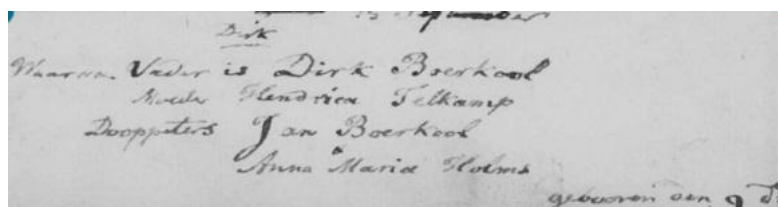 13 September
Dirk
Waarvan Vader is Dirk Boerkool
Moeder Hendrica Telkamp
Dooppeters Jan Boerkool
Anna Maria Holms
gebooren den 9 d